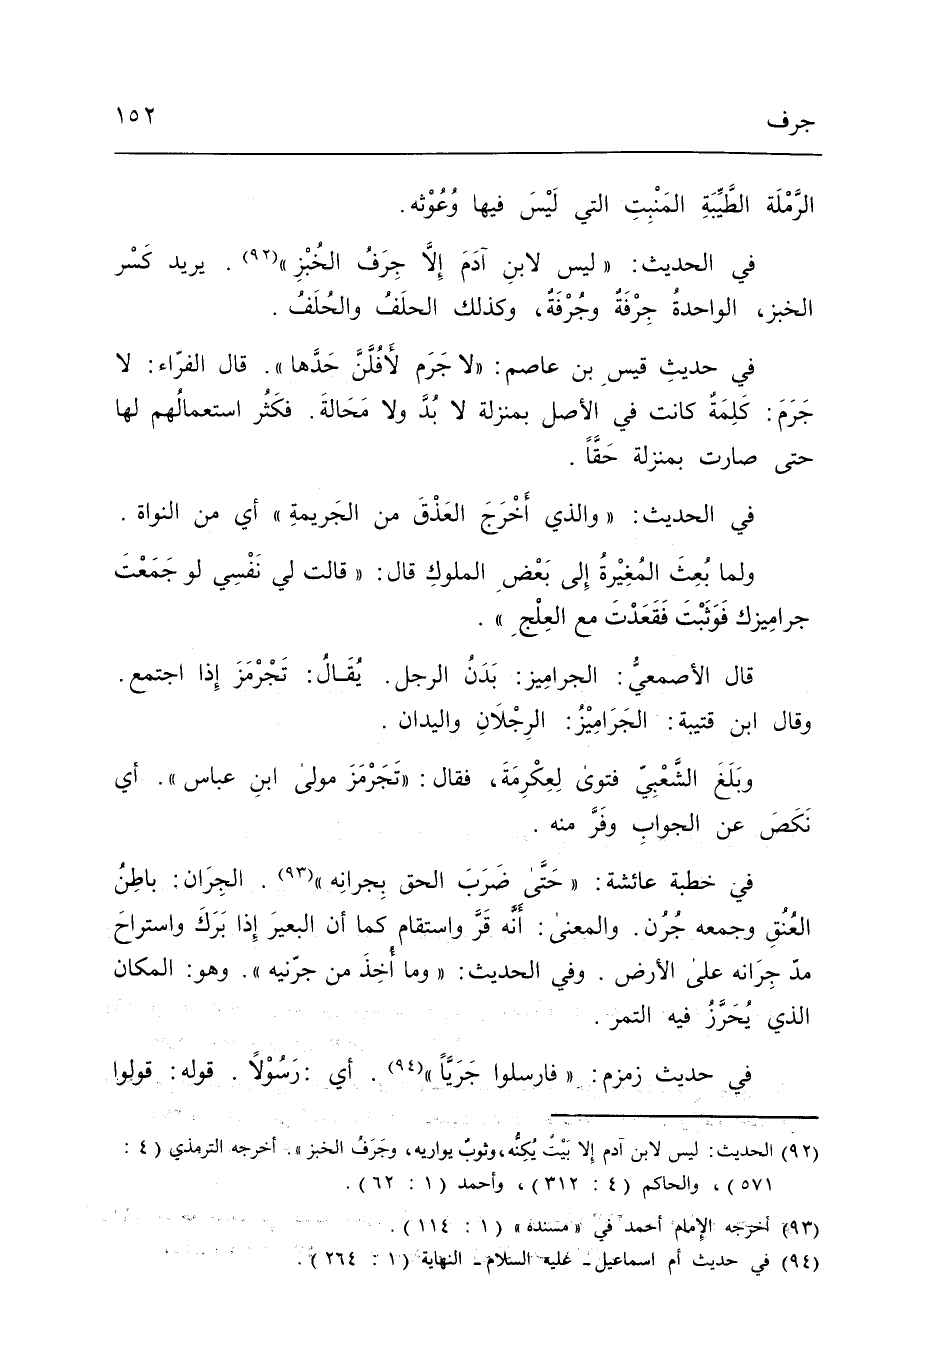 جرف ١٥٢
الرَّمْلَة الطَّيِّبَةِ المَنْبِتِ التي لَيْسَ فيها وُعُوْثه .
في الحديث: « ليس لابنِ آدَمَ إِلَّا جِرَفُ الخُبْزِ »(٩٢) . يريد كَسْر
الخبز، الواحدةُ جِرْفَةٌ وجُرْفَةٌ، وكذلك الحلَفُ والحُلَفُ .
في حديثِ قيسِ بن عاصم: «لا جَرَم لَأَفُلَّنَّ حَدَّها ». قال الفرّاء: لا
جَرَمَ: كَلِمَةٌ كانت في الأصل بمنزلة لا بُدَّ ولا مَحَالةَ. فكَثُر استعمالُهم لها
حتى صارت بمنزلة حَقَّاً .
في الحديث: « والذي أَخْرَجَ العَذْقَ من الجَريمةِ » أي من النواة .
ولما بُعِثَ المُغِيْرةُ إلى بَعْضِ الملوكِ قال: « قالت لي نَفْسِي لو جَمَعْتَ
جرامِيزك فَوَثَبْتَ فَقَعَدْتَ مع العِلْجِ » .
قال الأصمعيُّ: الجرامِيز: بَدَنُ الرجل. يُقَـالُ: تَجْرْمَزَ إذا اجتمع.
وقال ابن قتيبة: الجَرَامِيْزُ: الرِجْلَانِ واليدان .
وبَلَغَ الشَّعْبِيّ فتوىٰ لِعِكْرِمَةَ، فقال: «تَجَرْمَزَ مولىٰ ابنِ عباس ». أي
نَكَصَ عن الجوابِ وفَرَّ منه .
في خطبة عائشة: « حَتَّىٰ ضَرَبَ الحق بِجرانِه »(٩٣) . الجِرَان: باطِنُ
العُنُقِ وجمعه جُرُن. والمعنىٰ: أَنَّه قَرَّ واستقام كما أن البعيرَ إذا بَرَكَ واستراحَ
مدّ جِرَانه علىٰ الأرض . وفي الحديث: « وما أُخِذَ من جرّنيه ». وهو: المكان
الذي يُحَرَّزُ فيه التمر .
في حديث زمزم: « فارسلوا جَرَيَّاً »(٩٤) . أي :رَسُوْلًا . قوله: قولوا
(٩٢) الحديث: ليس لابن آدم إلا بَيْتٌ يُكِنُّه، وثوبٌ يواريه، وجَرَفُ الخبز ». أخرجه الترمذي ( ٤ :
٥٧١ ) ، والحاكم ( ٤ : ٣١٢ ) ، وأحمد ( ١ : ٦٢ ) .
(٩٣) أخرجه الإمام أحمد في « مسنده » ( ١ : ١١٤ ) .
(٩٤) في حديث أم اسماعيل ـ عليه السلام ـ النهاية ( ١ : ٢٦٤ ) .